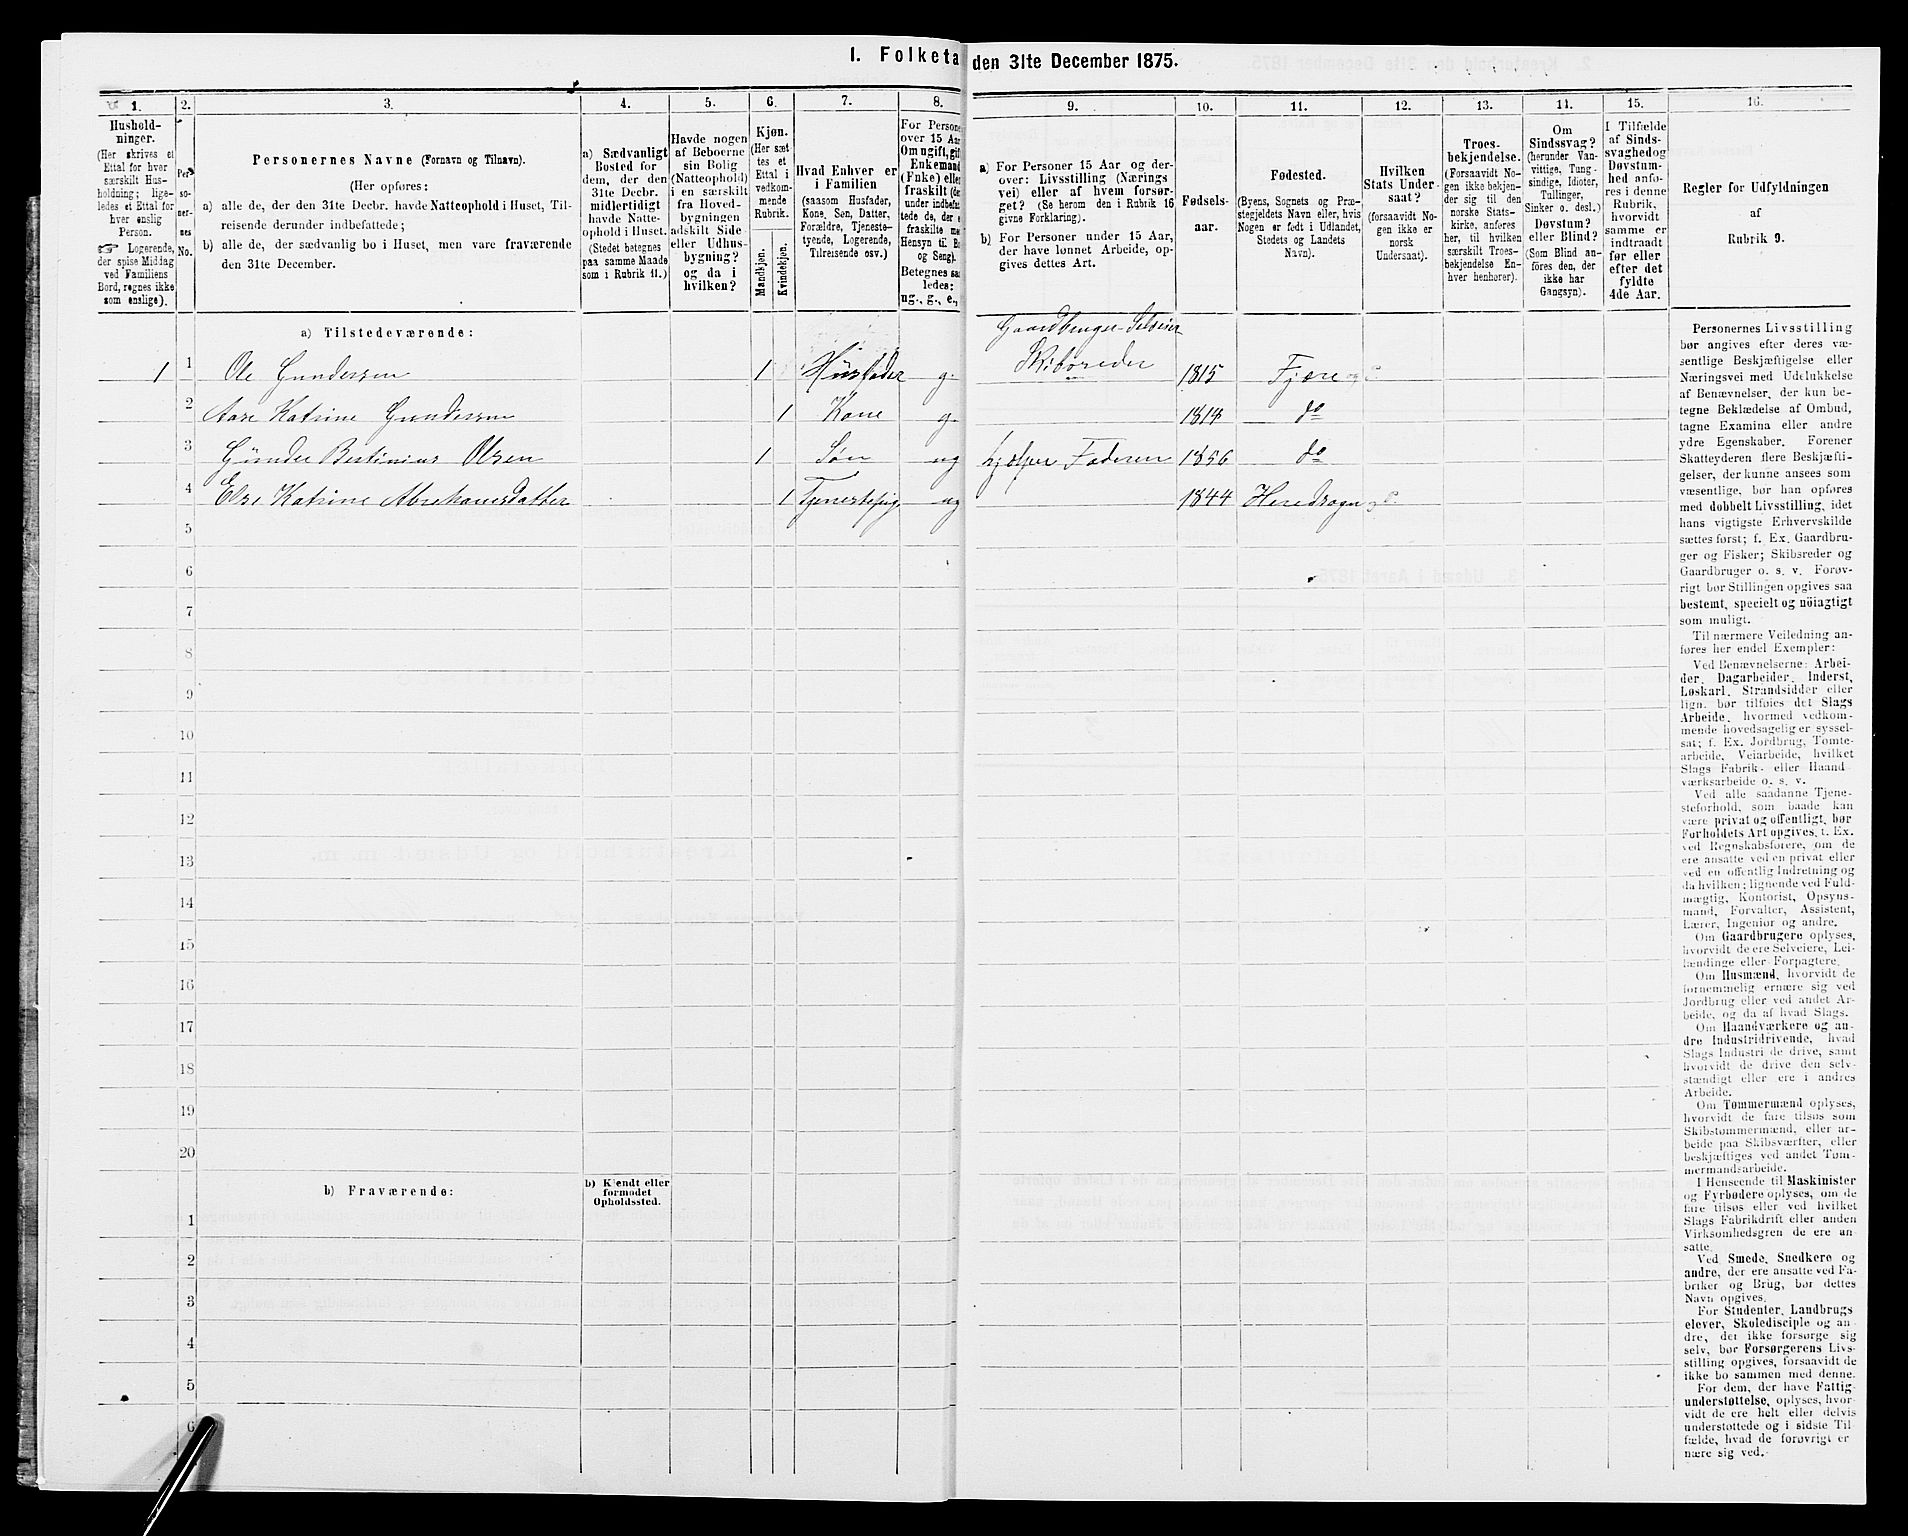 1. Folketa den 31te December 1875.
1. 2. 3. 4. 5. 6. 7. 8. 9. 10. 11. 12. 13. 14. 15. 16.
Hushold-
ninger.
(Her skrives et
Ettal for hver
særskilt Hus-
holdning; lige-
ledes et Ettal for
hver enslig
Person.
☞ Logerende,
der spise Middag
ved Familiens
Bord, regnes ikke
som enslige).
Per-
so-
ner-
nes
No.
Personernes Navne (Fornavn og Tilnavn).
(Her opføres:
a) alle de, der den 31te Decbr. havde Natteophold i Huset, Til-
reisende derunder indbefattede;
b) alle de, der sædvanlig bo i Huset, men vare fraværende
den 31te December.
a) Sædvanligt
Bosted for
dem, der den
31te Decbr.
midlertidigt
havde Natte-
ophold i Huset.
(Stedet betegnes
paa samme Maade
som i Rubrik 11.)
Havde nogen
af Beboerne
sin Bolig
(Natteophold)
i en særskilt
fra Hoved-
bygningen
adskilt Side-
eller Udhus-
bygning?
og da i
hvilken?
Kjøn.
(Her sæt-
tes et
Ettal i
vedkom-
mende
Rubrik.
Mandkjøn.
Kvindekjøn.
Hvad Enhver er
i Familien
(saasom Husfader,
Kone, Søn, Datter,
Forældre, Tjeneste-
tyende, Logerende,
Tilreisende osv.)
For Persone
over 15 Aar
Om ugift, gift
Enkemand
(Enke) elle
fraskilt (der
under indbefat-
tede de, der e
fraskilte me
Hensyn til Bo
og Seng).
Betegnes saa
ledes:
ug., g., e.,
a) For Personer 15 Aar og der-
over: Livsstilling (Nærings
vei) eller af hvem forsør-
get? (Se herom den i Rubrik 16
givne Forklaring).
b) For Personer under 15 Aar,
der have lønnet Arbeide, op-
gives dettes Art.
Fødsels-
aar.
Fødested.
(Byens, Sognets og Præ-
stegjeldets Navn eller, hvis
Nogen er født i Udlandet,
Stedets og Landets
Navn).
Hvilken
Stats Under-
saat?
(forsaavidt No-
gen ikke er
norsk
Undersaat).
Troes-
bekjendelse.
(Forsaavidt No-
gen ikke bekjen-
der sig til den
norske Stats-
kirke, anføres
her, til hvilken
særskilt Troes-
bekjendelse En-
hver henhører).
Om
Sindssvag?
(herunder Van-
vittige, Tung-
sindige, Idioter,
Tullinger,
Sinker o. desl.)
Døvstum?
eller Blind?
(Som Blind an-
føres den, der
ikke har
Gangsyn).
I Tilfælde
af Sinds-
svaghed og
Døvstum-
hed anfø-
res i denne
Rubrik,
hvorvidt
samme er
indtraadt
før eller
efter det
fyldte
4de Aar.
Regler for Udfyldningen
af
Rubrik 9.
a) Tilstedeværende:
Gaardbruger Selveier
1 1 Ole Gundersen 1 Husfader g. Skibsreder 1815 Fjære
2 Aase Katrine Gundersen 1 Kone g. 1818 do
3 Gunder Bertinius Olsen 1 Søn ug hjælper Faderen 1856 do
4 Else Katrine Abrahamsdatter 1 Tjenestepige ug 1844 Heredsogn
5
6
7
8
9
10
11
12
13
14
15
16
17
18
19
20
b) Fraværende:
b) Kjendt eller
formodet
Opholdssted.
1
2
3
4
5
6
Personernes Livsstilling
bør angives efter deres væ-
sentlige Beskjæftigelse eller
Næringsvei med Udelukkelse
af Benævnelser, der kun be-
tegne Beklædelse af Ombud,
tagne Examina eller andre
ydre Egenskaber. Forener
Skatteyderen flere Beskjæfti-
gelser, der kunne ansees som
væsentlige, bør han opføres
med dobbelt Livsstilling, idet
hans vigtigste Erhvervskilde
sættes først; f. Ex. Gaardbru-
ger og Fisker; Skibsreder og
Gaardbruger o. s. v. Forøv-
rigt bør Stillingen opgives saa
bestemt, specielt og nøiagtigt
som muligt.
Til nærmere Veiledning an-
føres her endel Exempler:
Ved Benævnelserne: Arbei-
der, Dagarbeider, Inderst,
Løskarl, Strandsidder eller
lign. bør tilføies det Slags
Arbeide, hvormed vedkom-
mende hovedsagelig er syssel-
sat; f. Ex. Jordbrug, Tomte-
arbeide, Veiarbeide, hvilket
Slags Fabrik- eller Haand-
værksarbeide o. s. v.
Ved alle saadanne Tjene-
steforhold, som baade kan
være privat og offentligt, bør
Forholdets Art opgives, t. Ex.
ved Regnskabsførere, om de
ere ansatte ved en privat eller
ved en offentlig Indretning og
da hvilken; lignende ved Fuld-
mægtig, Kontorist, Opsyns-
mand, Forvalter, Assistent,
Lærer, Ingeniør og andre.
Om Gaardbrugere oplyses,
hvorvidt de ere Selveiere, Lei-
lændinge eller Forpagtere.
Om Husmænd, hvorvidt de
fornemmelig ernære sig ved
Jordbrug eller ved andet Ar-
beide, og da af hvad Slags.
Om Haandværkere og an-
dre Industridrivende, hvad
Slags Industri de drive, samt
hvorvidt de drive den selv-
stændigt eller ere i andres
Arbeide.
Om Tømmermænd oplyses,
hvorvidt de fare tilsøs som
Skibstømmermænd, eller ar-
beide paa Skibsværfter, eller
beskjæftiges ved andet Tøm-
mermandsarbeide.
I Henseende til Maskinister
og Fyrbødere oplyses, om de
fare tilsøs eller ved hvilket
Slags Fabrikdrift eller anden
Virksomhedsgren de ere an-
satte.
Ved Smede, Snedkere og
andre, der ere ansatte ved Fa-
briker og Brug, bør dettes
Navn opgives.
For Studenter, Landbrugs
elever, Skoledisciple og an-
dre, der ikke forsørge sig
selv, bør Forsørgerens Livs-
stilling opgives, forsaavidt de
ikke bo sammen med denne.
For dem, der have Fattig-
understøttelse, oplyses, hvor-
vidt de ere helt eller delvis
understøttede og i sidste Til-
fælde, hvad de forøvrigt er
nære sig ved.